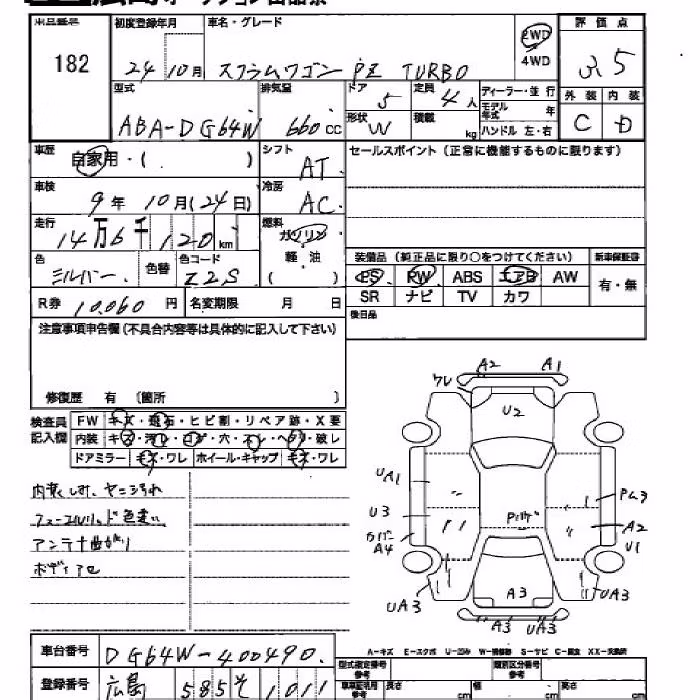 広島オークション出品票
出品番号 初度登録年月 車名・グレード 評価点
182 24 10月 スクラムワゴン PZ TURBO 2WD 4WD 3.5
型式 排気量 ドア 定員 ディーラー・並行 外装 内装
ABA-DG64W 660 cc 5 4人 モデル年式 年 C D
形状 W 積載 kg ハンドル 左・右
車歴 自家用・( ) シフト AT セールスポイント(正常に機能するものに限ります)
車検 9年 10月(24日) 冷房 AC
走行 14万6千120km 燃料 ガソリン 軽・油 ( )
装備品(純正品に限り○をつけてください) 新車保証書
色 シルバー 色替 色コード Z2S
PS PW ABS エアB AW 有・無
SR ナビ TV カワ
R券 10,060円 名変期限 月 日
後日品
注意事項申告欄(不具合内容等は具体的に記入して下さい)
修復歴 有 〔箇所 〕
検査員記入欄 FW キズ・飛石・ヒビ割・リペア跡・X要
内装 キズ・汚レ・コゲ・穴・スレ・ヘタリ・破レ
ドアミラー キズ・ワレ ホイール・キャップ キズ・ワレ
内装しみ、ヤニ汚れ
フューエルリッド色違い
アンテナ曲がり
A2 A1
ワレ
U2
UA1
U3
A4
Pハゲ
PM3
A2
U1
UA3
A3
UA3
A3 UA3
A-キズ E-エクボ U-凹み W-補修跡 S-サビ C-腐食 XX-交換済
車台番号 DG64W-400490
型式指定番号 参考 類別区分番号 参考
登録番号 広島 585 そ 1011
車庫証明用 参考 長さ cm 幅 cm 高さ cm